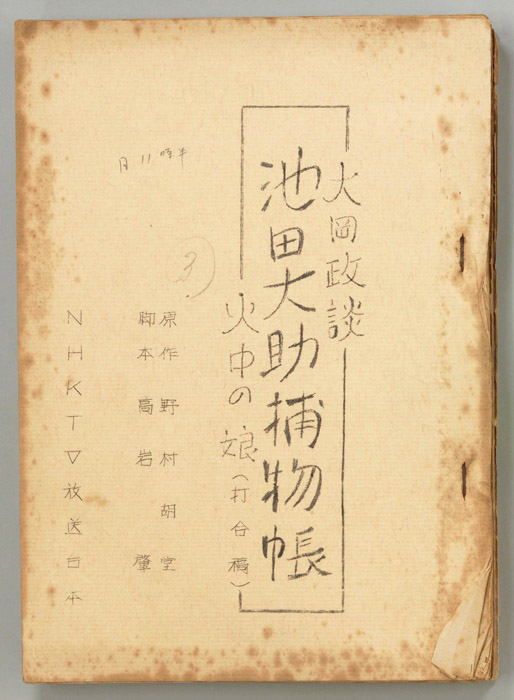 大岡政談
池田大助捕物帳
火中の娘(打合稿)
月 11時半
3)
原作 野村胡堂
脚本 高岩 肇
NHKTV放送台本